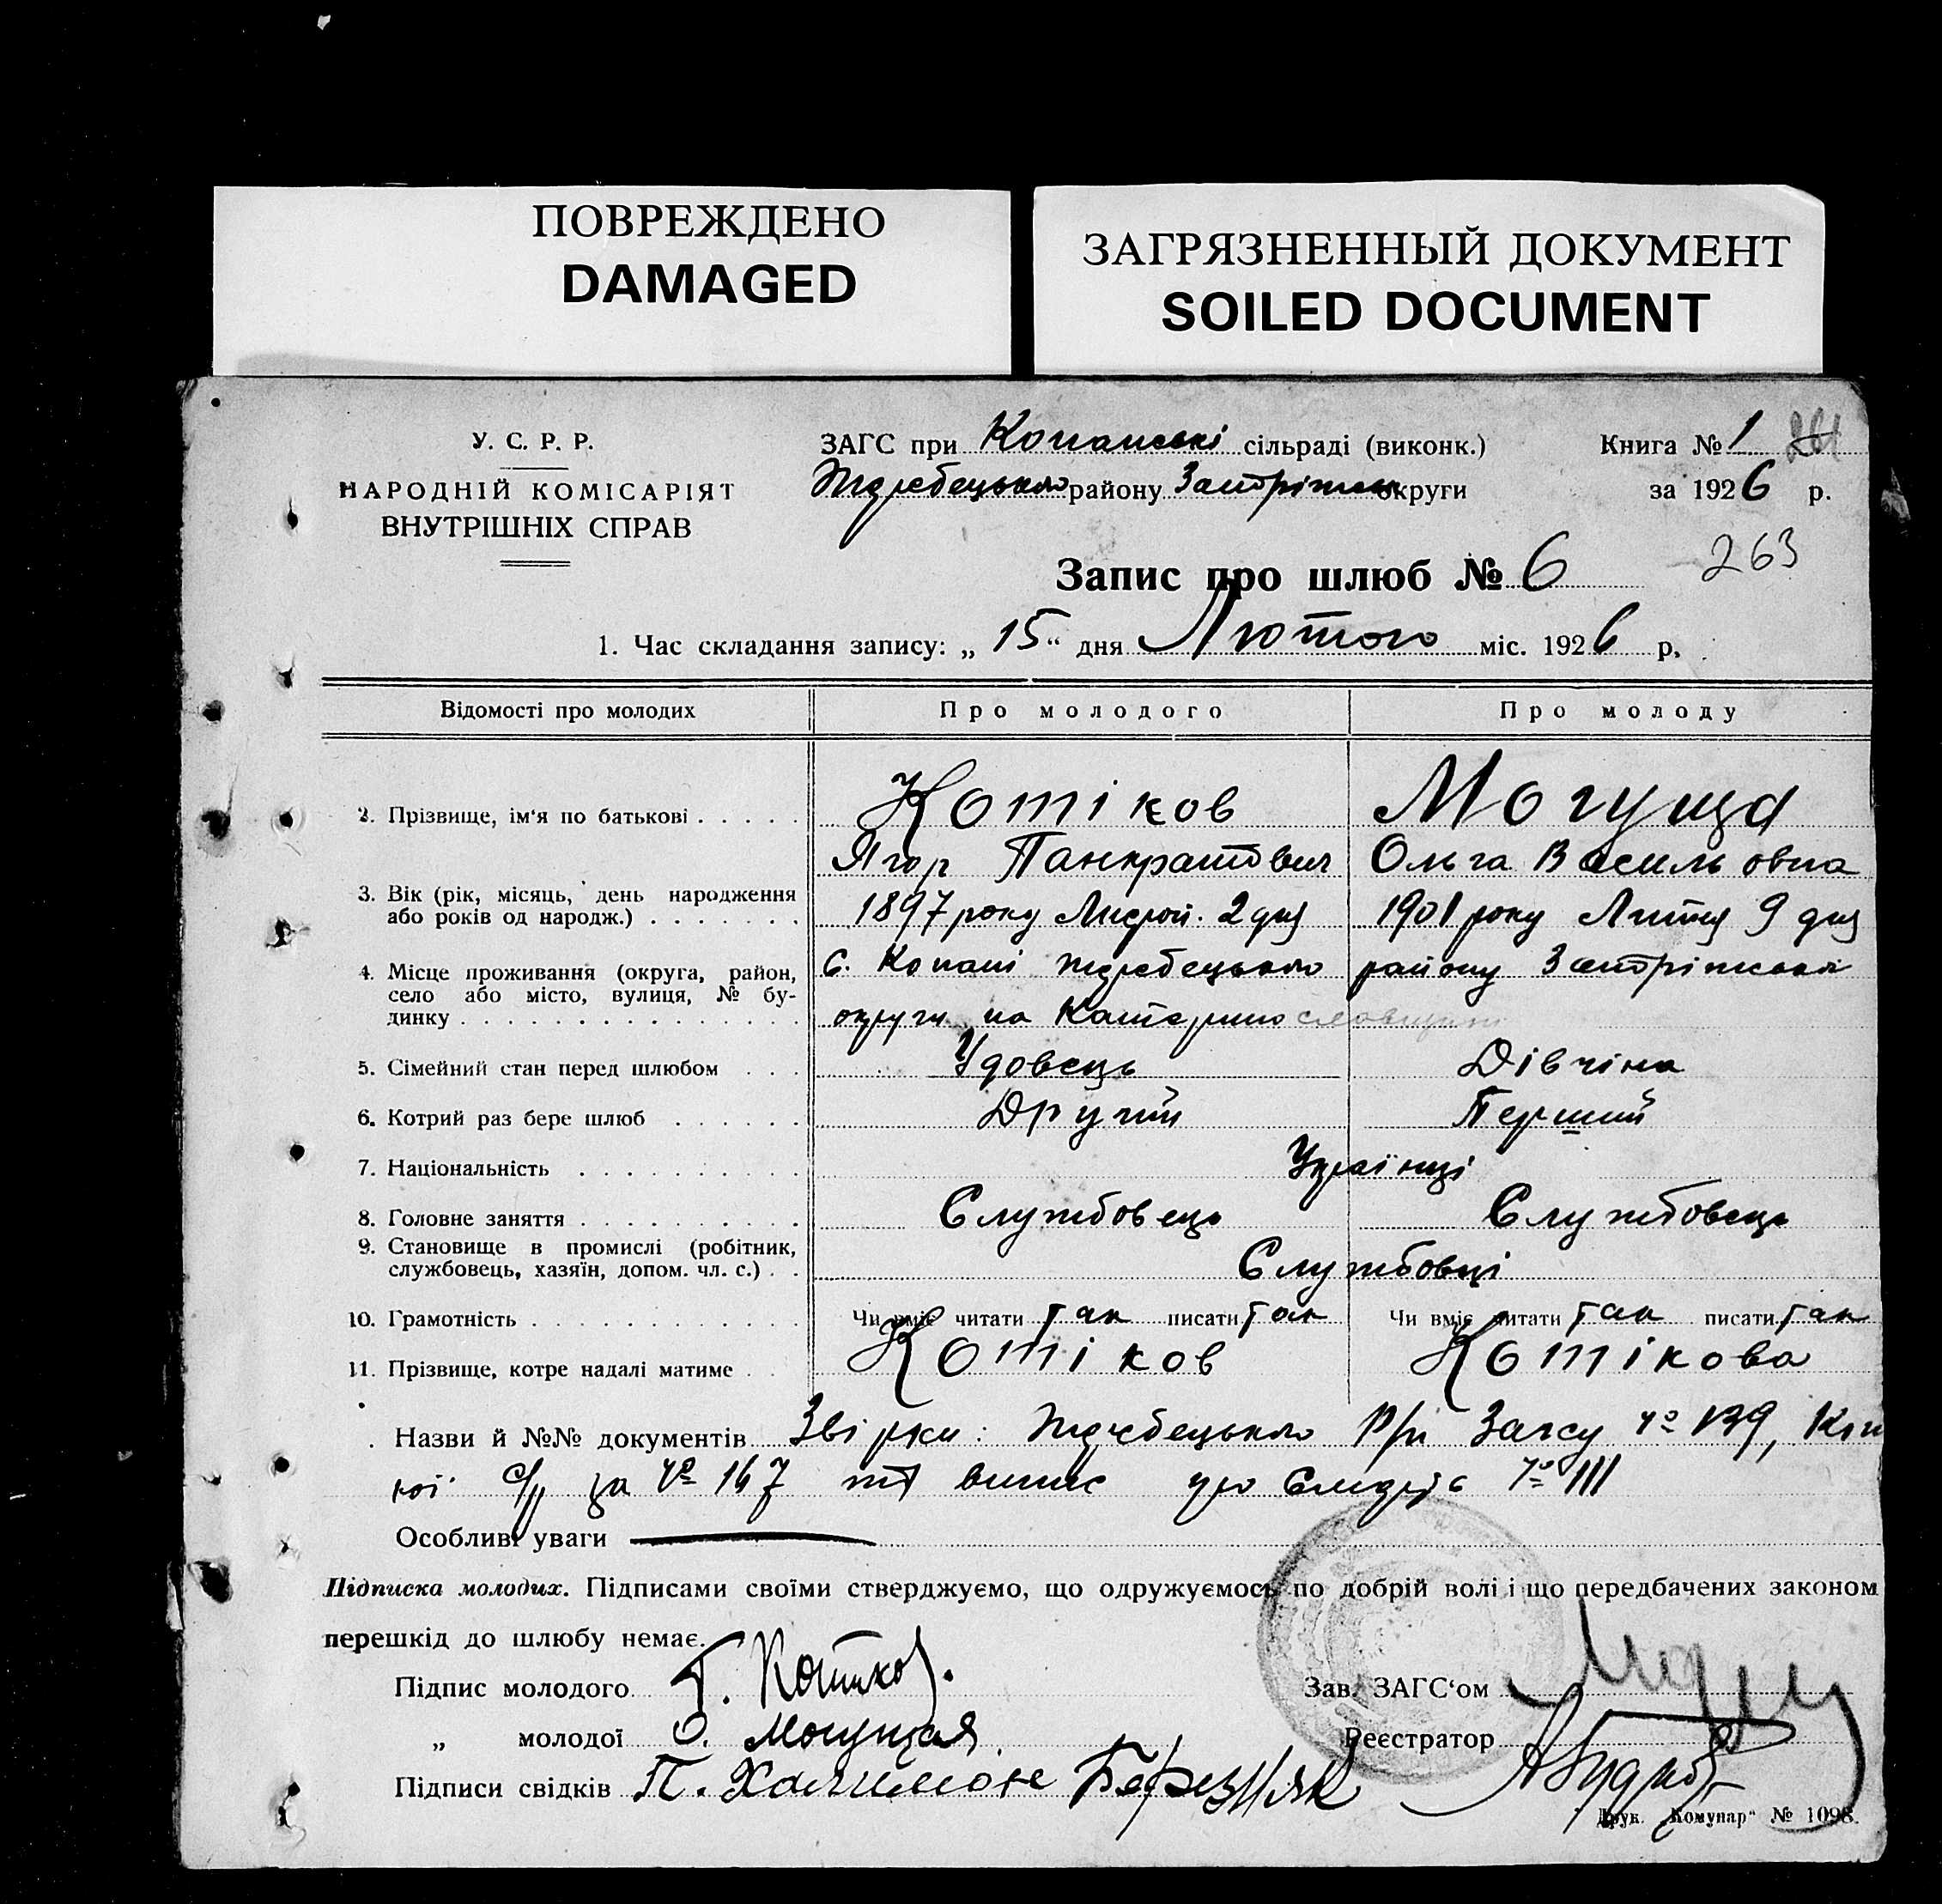 ПОВРЕЖДЕНО
DAMAGED
ЗАГРЯЗНЕННЫЙ ДОКУМЕНТ
SOILED DOCUMENT
У. С. Р. Р.
НАРОДНІЙ КОМІСАРІЯТ
ВНУТРІШНІХ СПРАВ
ЗАГС при Копанські сільраді (виконк.)
Жеребецького району Запоріжськ округи
Книга № 1 261
за 1926 р.
263
Запис про шлюб № 6
1. Час складання запису: „ 15 “ дня Лютого міс. 1926 р.
Відомості про молодих Про молодого Про молоду
2. Прізвище, ім'я по батькові Котіков Могуща
Ягор Панкратович Ольга Васильовна
3. Вік (рік, місяць, день народження
або років од народж.) 1897 року 2 дня 1901 року Липня 9 дня
4. Місце проживання (округа, район, с. Копані Жеребецького району Запоріжської
село або місто, вулиця, № бу-
динку округи на Катеринославщині
5. Сімейний стан перед шлюбом Удовець Дівчіна
6. Котрий раз бере шлюб Другий Перший
7. Національність Українці
8. Головне заняття Службовець Службовець
9. Становище в промислі (робітник,
службовець, хазяїн, допом. чл. с.) Службовці
10. Грамотність Чи вміє читати так писати так Чи вміє читати так писати так
11. Прізвище, котре надалі матиме Котіков Котікова
Назви й №№ документів Звірки: Жеребецького Р/н Загсу № 179, Коп
кої с/р за № 167 та випис про смерть № 111
Особливі уваги
Підписка молодих. Підписами своїми стверджуємо, що одружуємось по добрій волі і що передбачених законом
перешкід до шлюбу немає.
Підпис молодого Г. Котиков.
„ молодої О. Могущая
Підписи свідків П. Халимоне Березняк
Зав. ЗАГС'ом
Реєстратор
Друк. „Комунар“ № 1098.